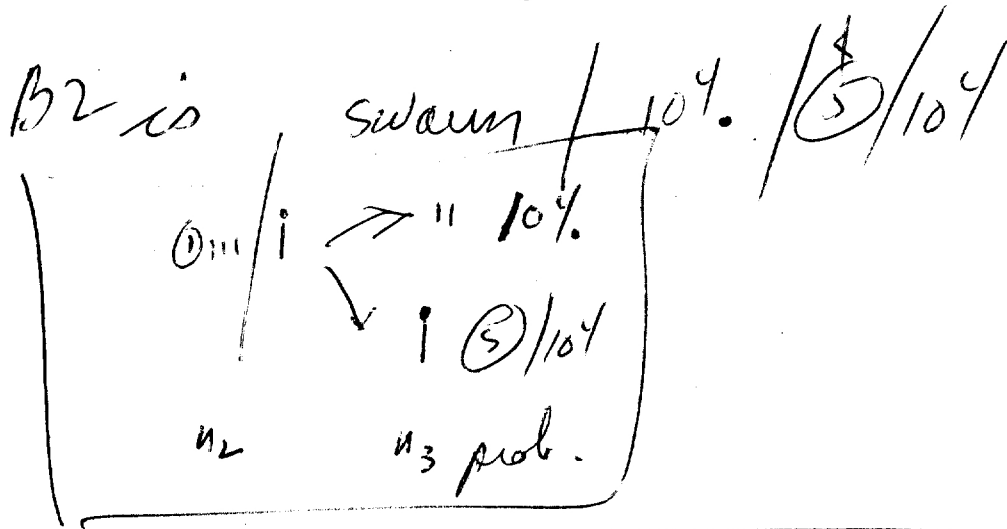 B2 is / swarm / 10%. / ⑤ / 10%
①''' / i → " 10%.
i ⑤/10%
n2 n3 prob.